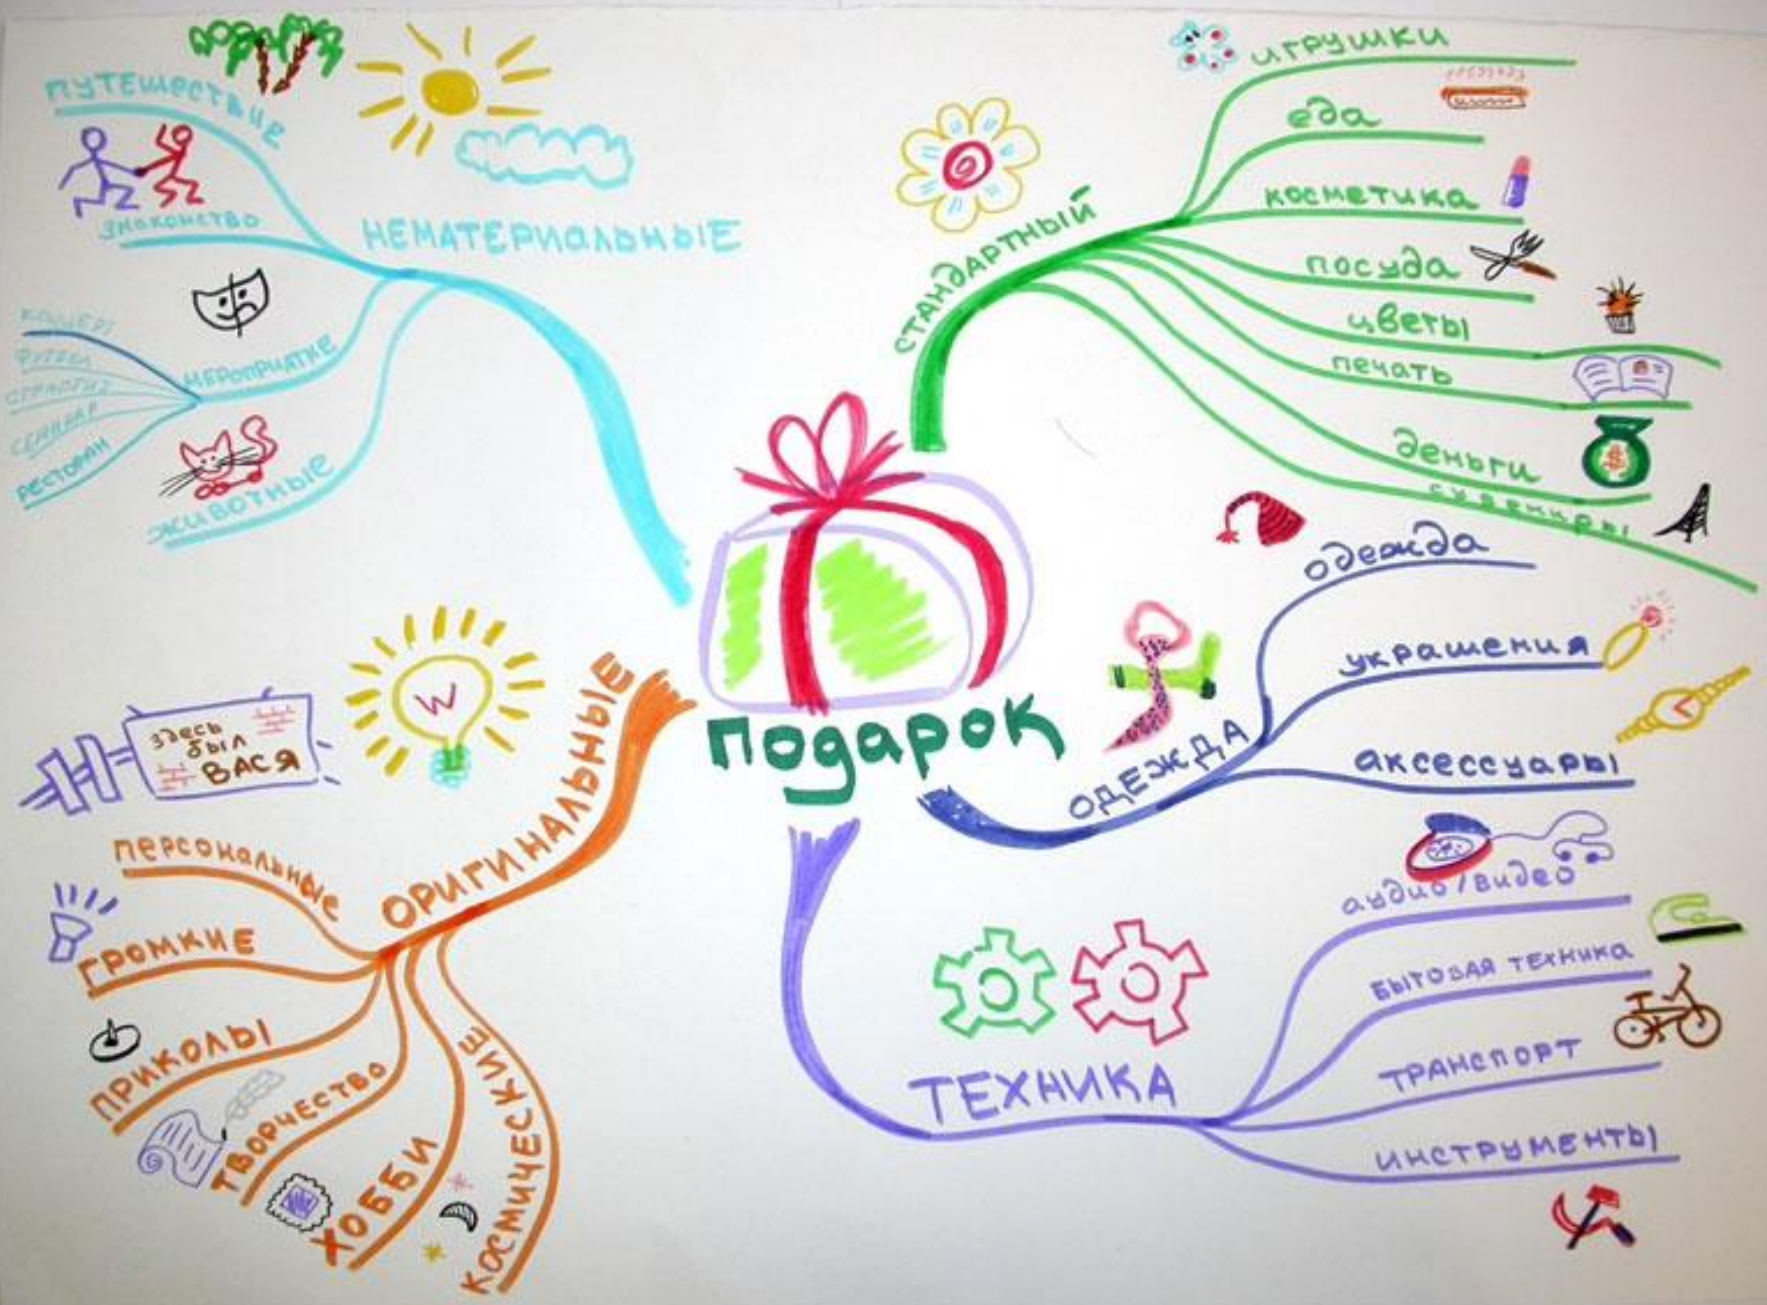 ПУТЕШЕСТВИЕ
ЗНАКОМСТВО
НЕМАТЕРИАЛЬНЫЕ
МЕРОПРИЯТИЕ
СЕМИНАР
РЕСТОРАН
ЖИВОТНЫЕ
СТАНДАРТНЫЙ
игрушки
еда
косметика
посуда
цветы
печать
деньги
сувениры
Подарок
ОДЕЖДА
одежда
украшения
аксессуары
ТЕХНИКА
аудио/видео
БЫТОВАЯ ТЕХНИКА
ТРАНСПОРТ
ИНСТРУМЕНТЫ
ОРИГИНАЛЬНЫЕ
здесь
был
ВАСЯ
персональные
ГРОМКИЕ
ПРИКОЛЫ
ТВОРЧЕСТВО
ХОББИ
КОСМИЧЕСКИЕ